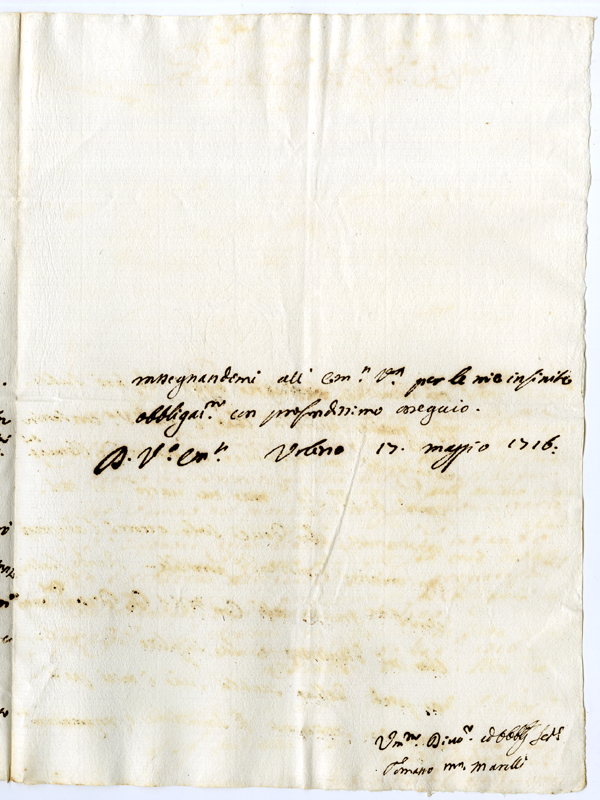 rassegnandomi all' Em.ª V.ª per le mie infinite
obbligaz.ni con profondissimo ossequio.
D. V.ª Em.ª Urbino 17. maggio 1716:
Um.mo Divo.mo ed Obblig.
Marelli